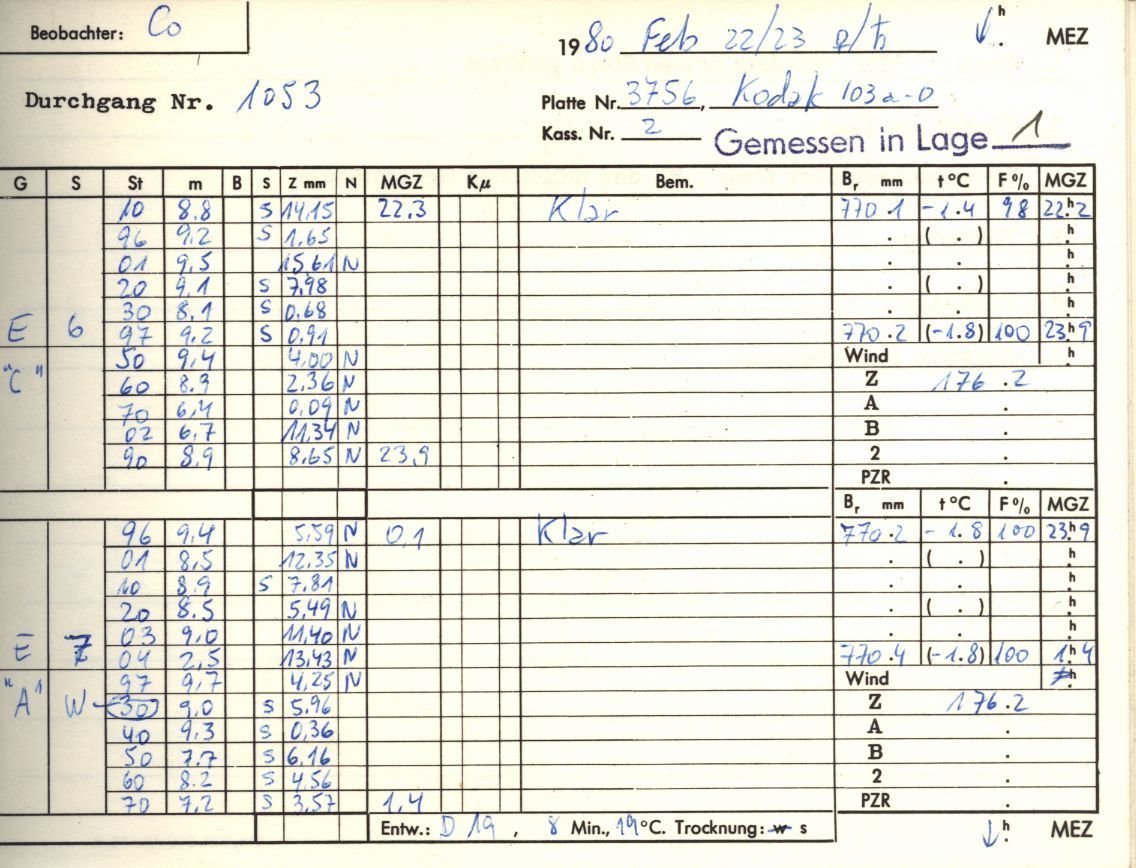 Beobachter: Co
1980 Feb 22/23 ♀/♄ ↓ h. MEZ
Durchgang Nr. 1053
Platte Nr. 3756, Kodak 103a-O
Kass. Nr. 2 Gemessen in Lage 1
G S St m B S Z mm N MGZ Kμ Bem. Br mm t°C F% MGZ
10 8.8 S 14,15 22,3 Klar 770.1 -1.4 98 22h.2
96 9.2 S 1.65 . ( . ) h.
01 9,5 15,61 N . . h.
20 9,1 S 7,98 . ( . ) h.
30 8,1 S 0,68 . . h.
E 6 97 9,2 S 0,91 770.2 (-1.8) 100 23h.9
50 9,4 4,00 N Wind h.
"C" 60 8.9 2,36 N Z 176.2
70 6,4 0,09 N A .
02 6,7 11,34 N B .
90 8,9 8,65 N 23,9 2 .
PZR .
Br mm t°C F% MGZ
96 9,4 5,59 N 0,1 Klar 770.2 -1.8 100 23h.9
01 8,5 12,35 N . ( . ) h.
10 8,9 S 7,81 . . h.
20 8.5 5,49 N . ( . ) h.
03 9,0 11,40 N . . h.
E 7 04 2,5 13,43 N 770.4 (-1.8) 100 1h.4
97 9,7 4,25 N Wind h.
"A" W 30 9,0 S 5,96 Z 176.2
40 9,3 S 0,36 A .
50 7.7 S 6,16 B .
60 8.2 S 4,56 2 .
70 7,2 S 3,57 1,4 PZR .
Entw.: D 19, 8 Min., 19°C. Trocknung: w s ↓ h. MEZ